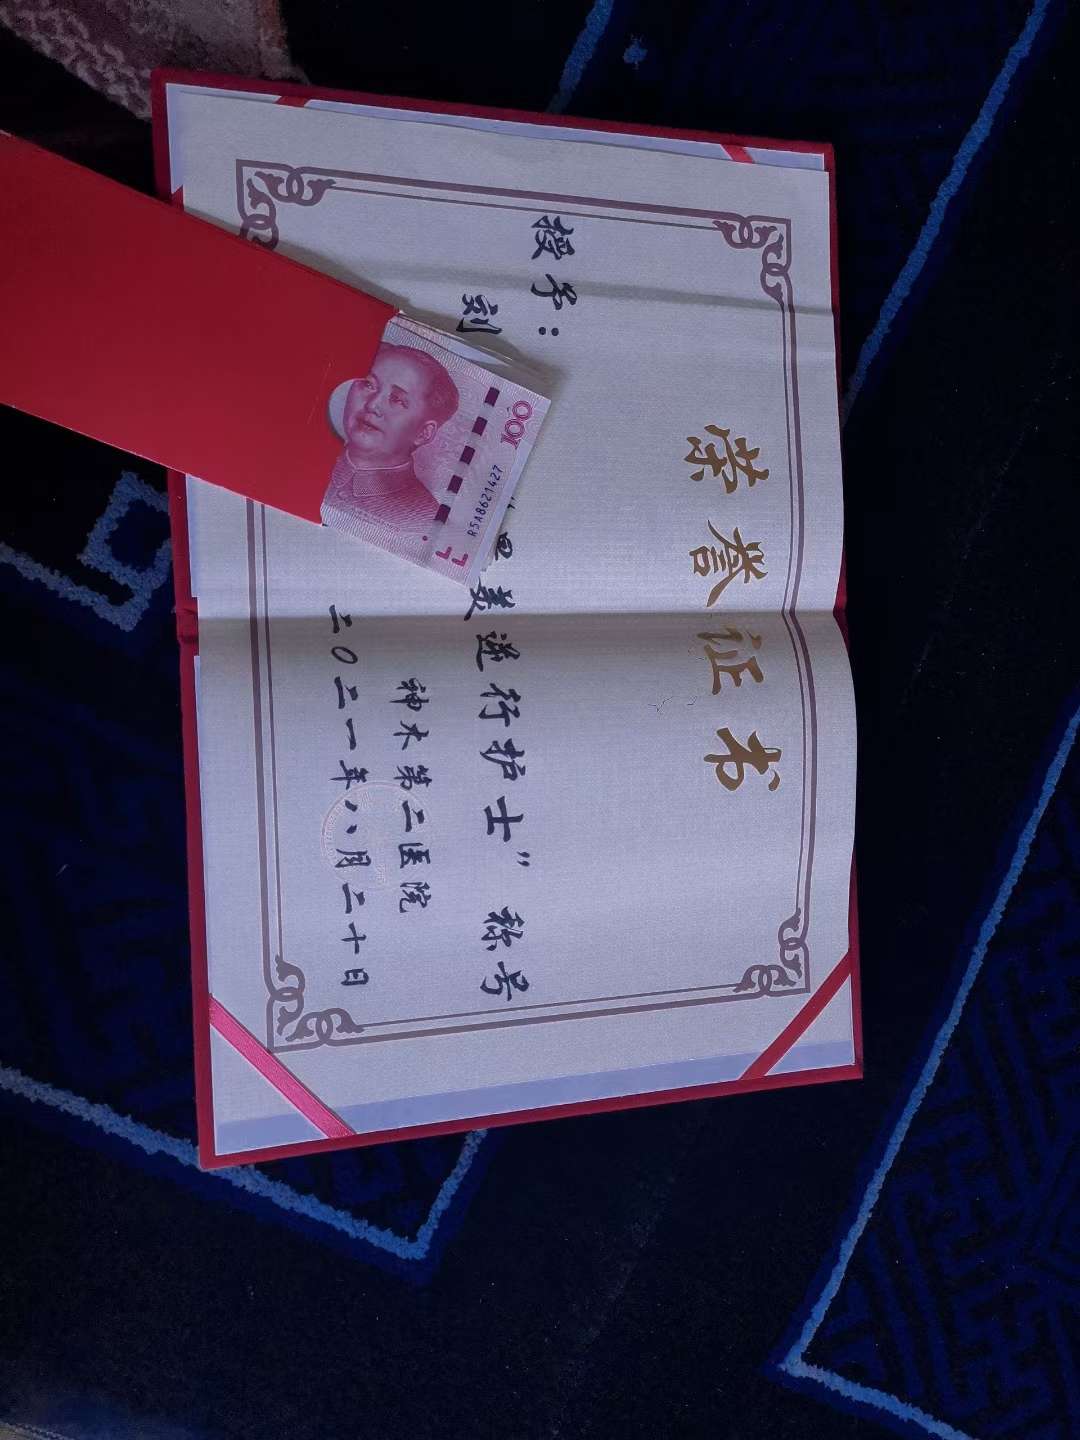 荣誉证书
授予：
刘
最美逆行护士” 称号
神木第二医院
二〇二一年八月二十日
100
R5A8621427